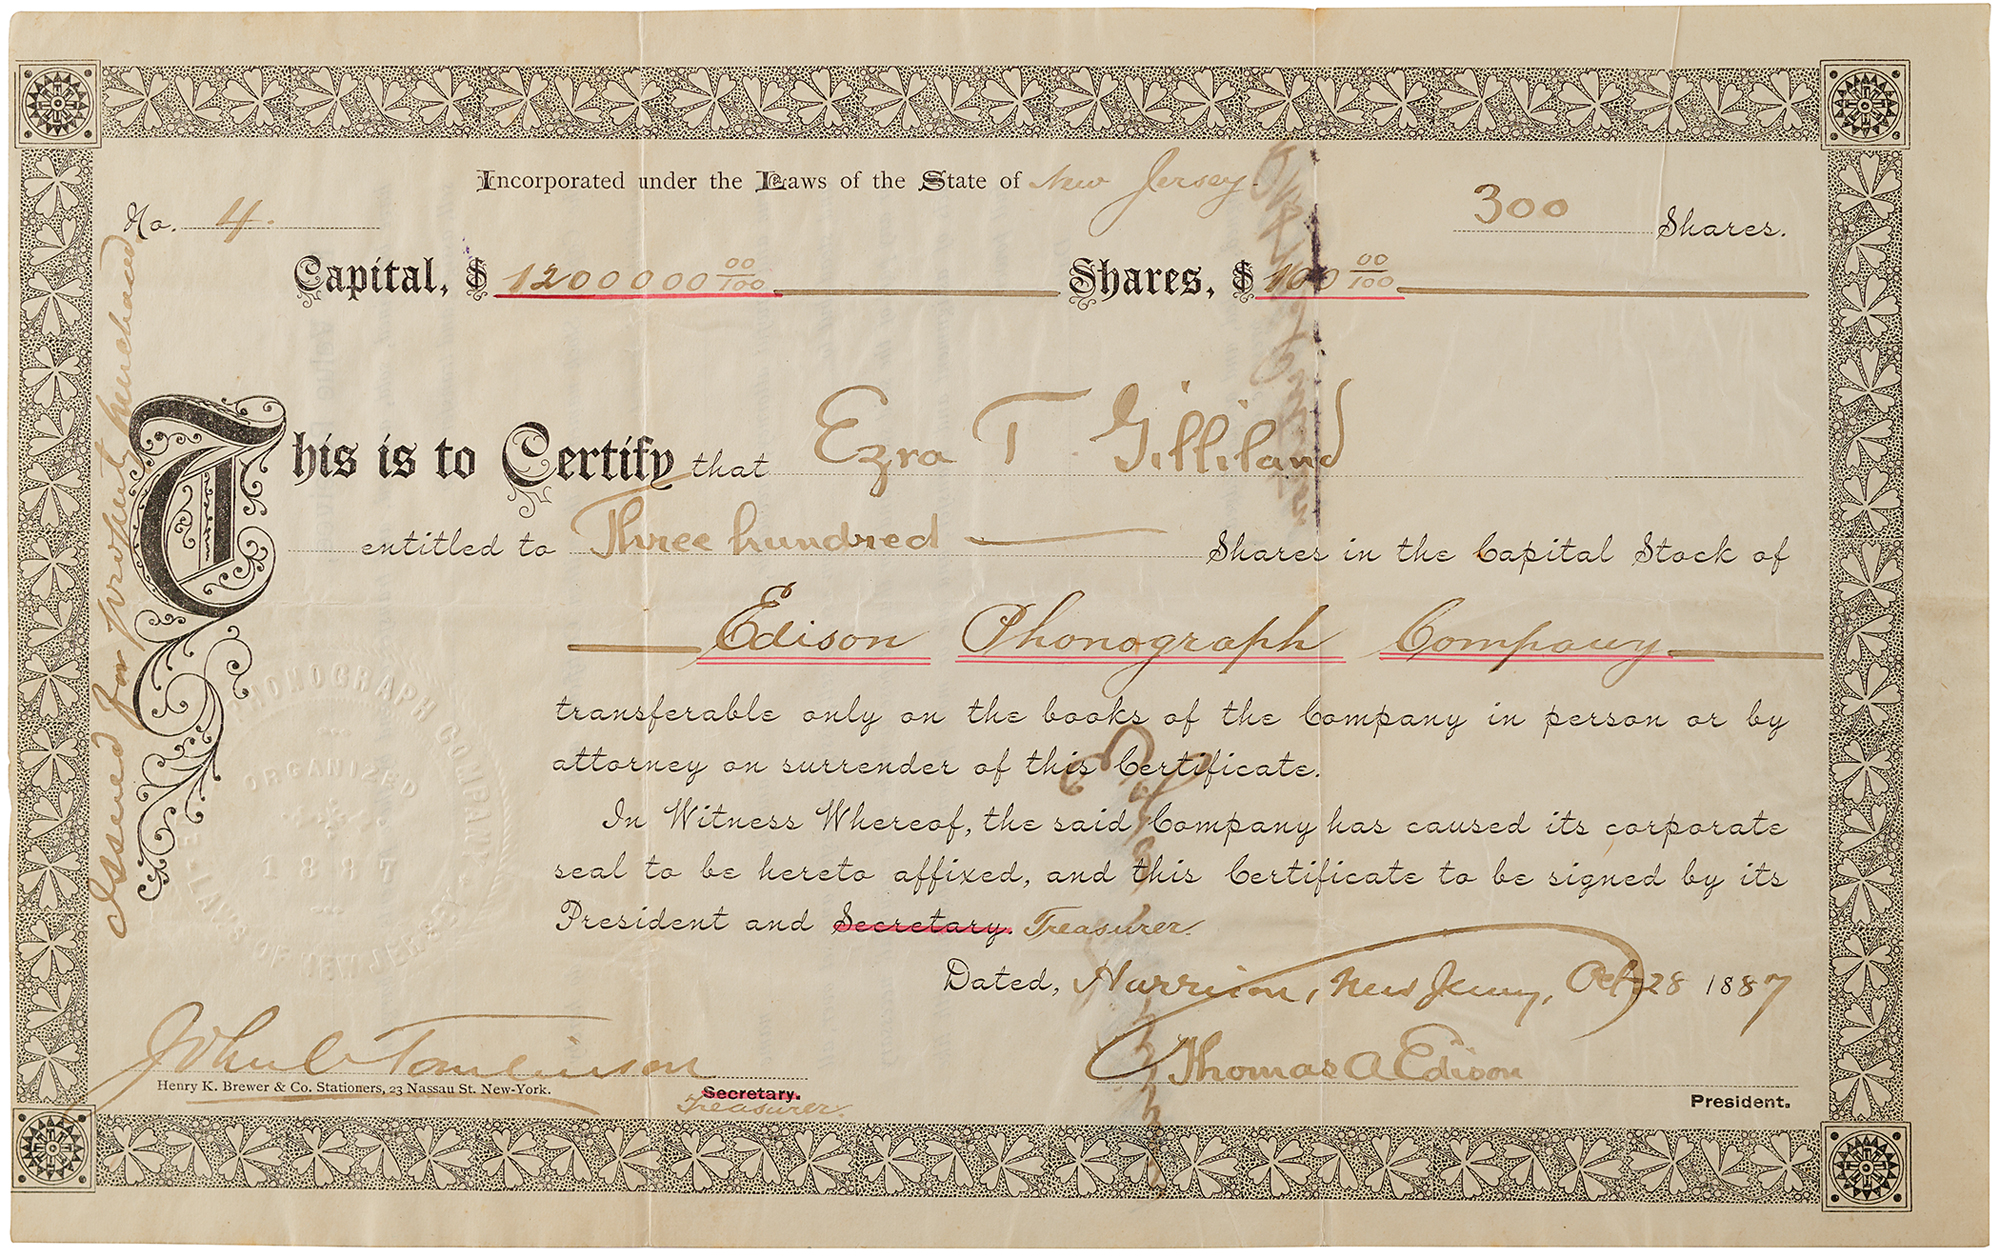 Incorporated under the Laws of the State of New Jersey.
No. 4.
300 Shares.
Capital, $ 1200000 00/100 Shares, $ 100 00/100
This is to Certify that Ezra T. Gilliland
entitled to Three hundred Shares in the Capital Stock of
Edison Phonograph Company
transferable only on the books of the Company in person or by
attorney on surrender of this Certificate.
In Witness Whereof, the said Company has caused its corporate
seal to be hereto affixed, and this Certificate to be signed by its
President and Secretary. Treasurer.
Dated, Harrison, New Jersey, Oct. 28 1887
John C Tomlinson
Thomas A Edison
Henry K. Brewer & Co. Stationers, 23 Nassau St. New-York.
Secretary.
Treasurer.
President.
Issued for property purchased
PHONOGRAPH COMPANY
ORGANIZED
1887
LAWS OF NEW JERSEY